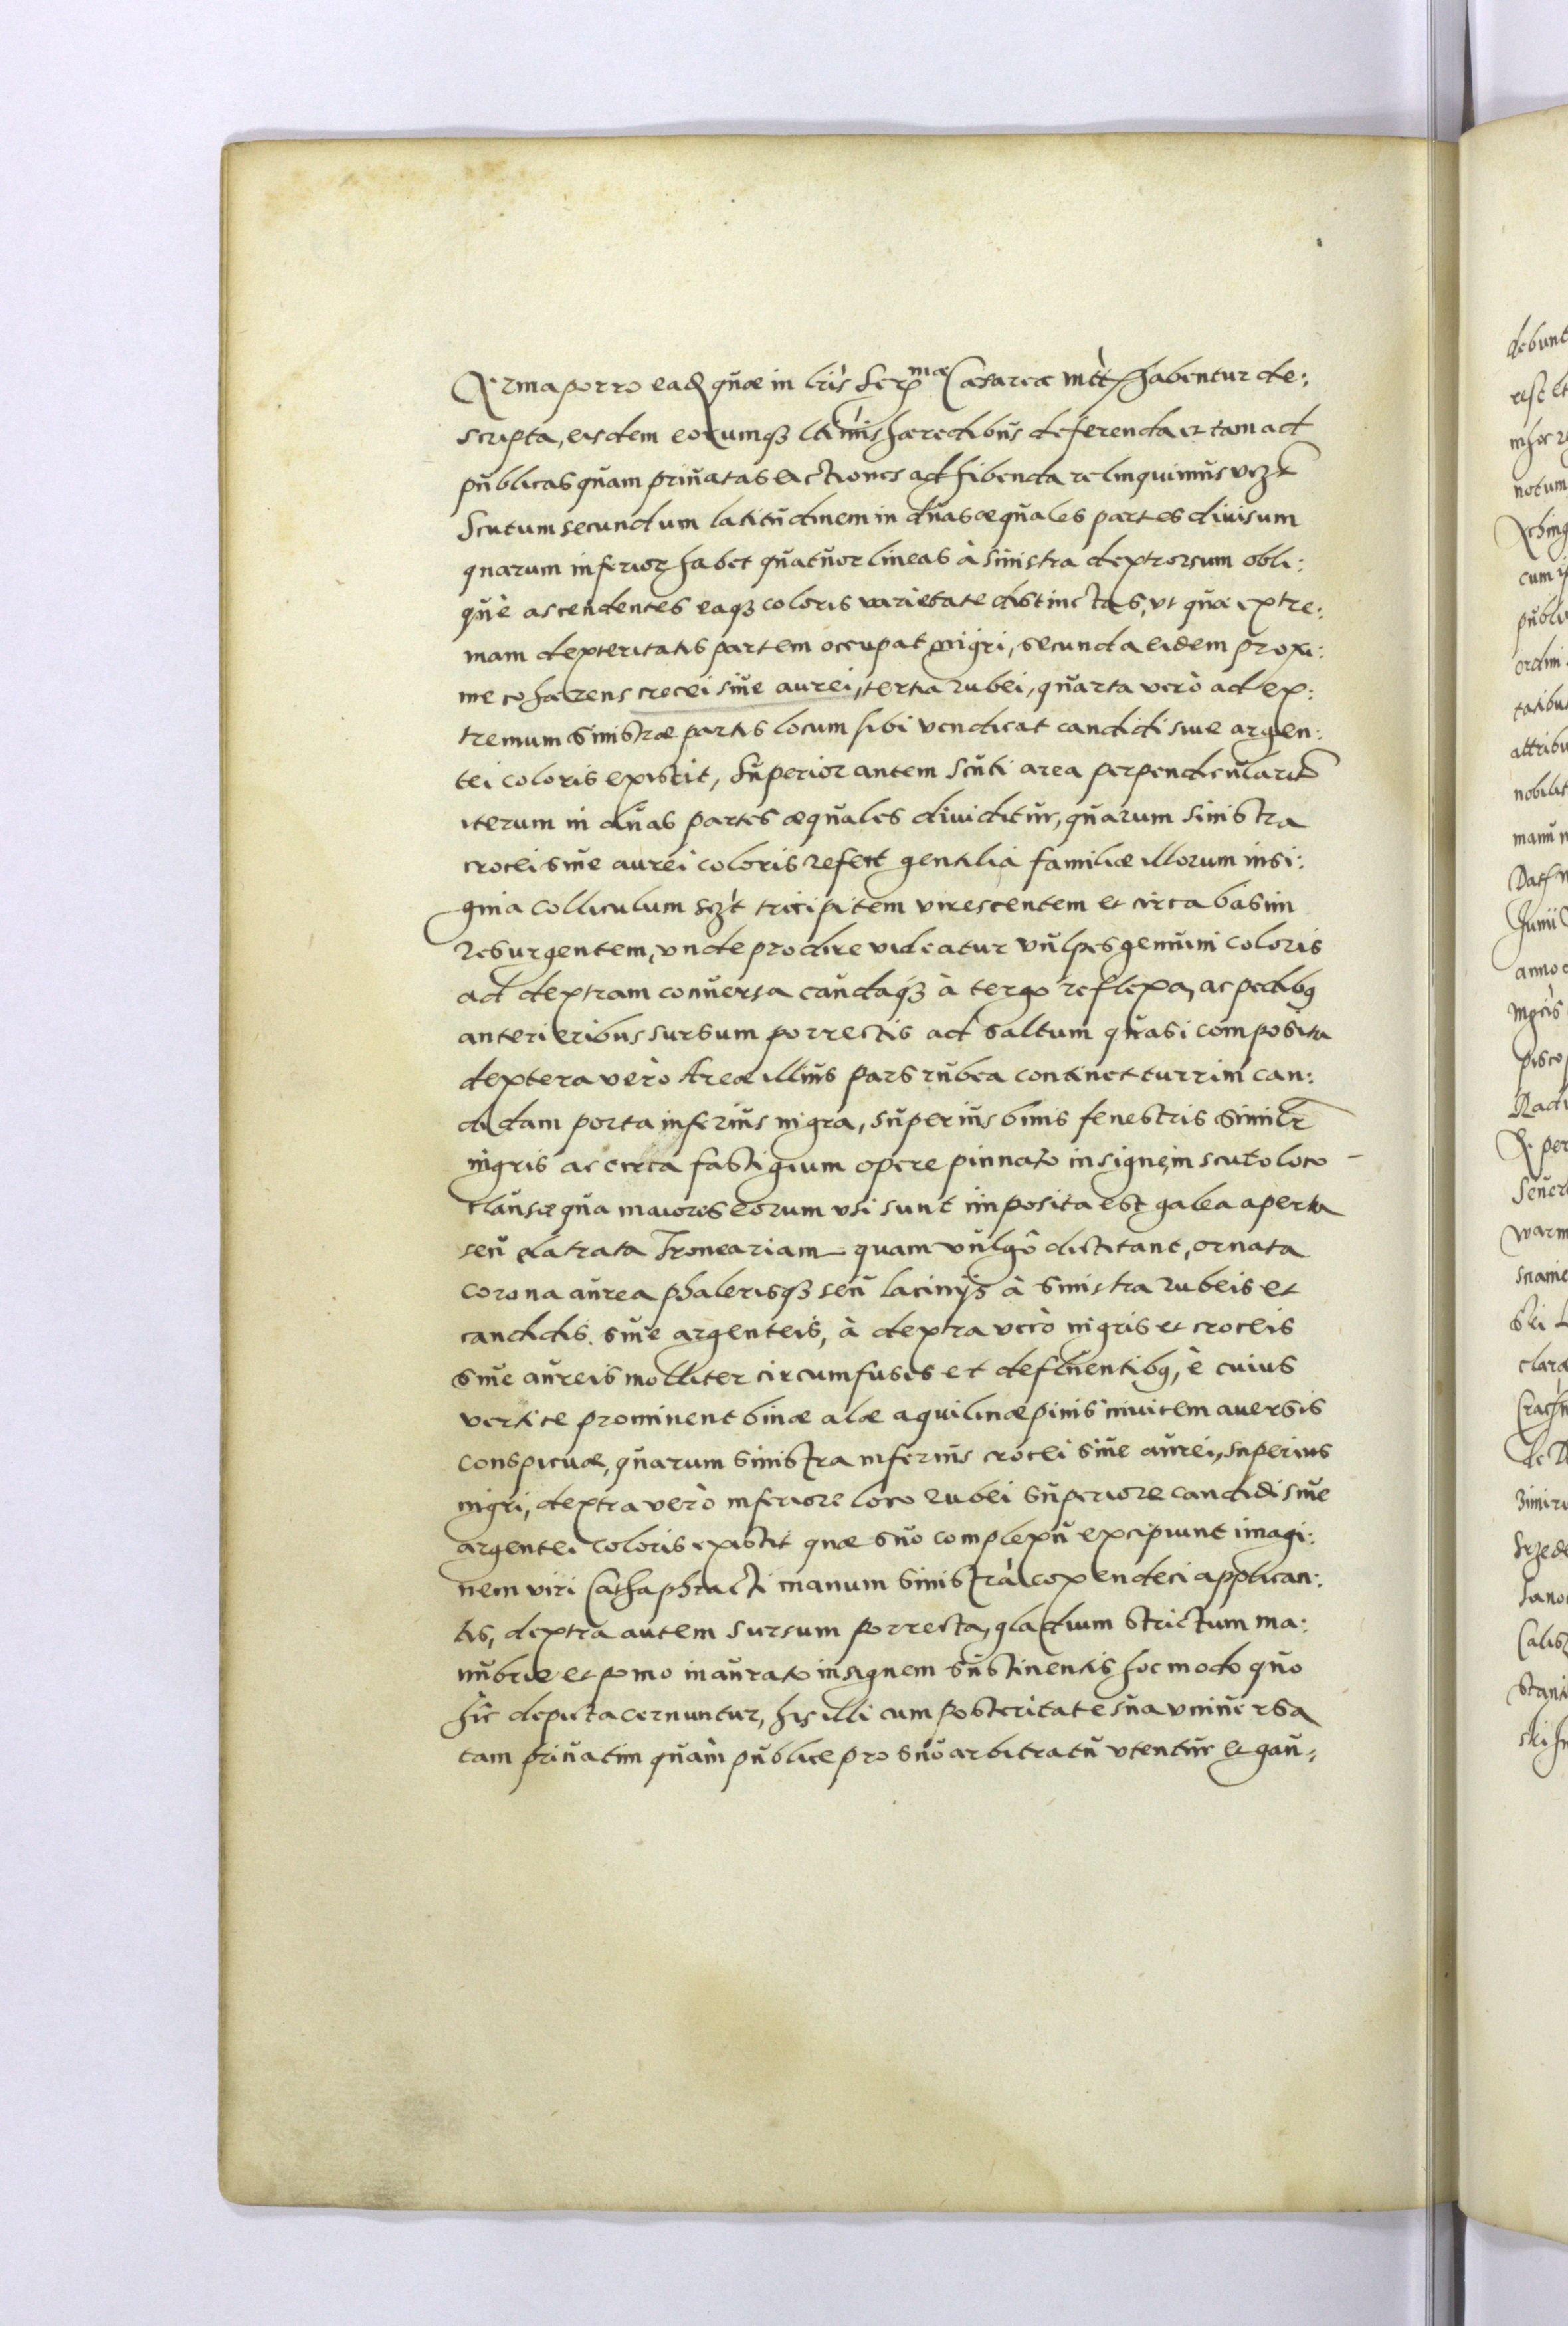 Arma porro eadē quæ in lrīs Serᵐᵃᵉ Cæsareæ mtt̀ habentur de:
scripta, eisdem eorumqꝫ ltīmis hæredibus deferenda et tam ad
publicas quam priuatas actiones adhibenda relinquimus vczt
Scutum secundum latitudinem in duas æquales partes diuisum
quarum inferior habet quatuor lineas à sinistra dextrorsum obli:
què ascendentes eaqꝫ coloris varietate distinctas, vt quæ extre:
mam dexteritatis partem occupat nigri, secunda eidem proxi:
me cohærens crocei siue aurei, tertia rubei, quarta verò ad ex:
tremum sinistræ partis locum sibi vendicat candidi siue argen:
tei coloris existit, Superior autem scuti area perpendicularitr
iterum in duas partes æquales diuiditur, quarum sinistra
crocei siue aurei coloris refert gentilia familiæ illorum insi:
gnia colliculum sczt tricipitem virescentem et circa basim
resurgentem, vnde prodire videatur vulpes genuini coloris
ad dextram conuersa caudaqꝫ à tergo reflexa, ac pedibꝫ
anterieribus sursum porrectis ad saltum quasi composita
dextera verò Areæ illius pars rubea continet turrim can:
didam porta inferius nigra, superius binis fenestris similr
nigris ac circa fastigium opere pinnato insignem, scuto loco
clausæ qua maiores eorum vsi sunt imposita est galea aperta
seu clatrata Troneariam quam vulgò dictitant, ornata
corona aurea phalerisqꝫ seu lacinijs à sinistra rubeis et
candidis siue argenteis, à dextra verò nigris et croceis
siue aureis molliter circumfusis et defluentibꝫ, è cuius
vertice prominent binæ alæ aquilinæ pinis inuicem auersis
conspicuæ, quarum sinistra inferius crocei siue aurei, superius
nigri, dextra verò inferiore loco rubei superiore candidi siue
argentei coloris existit quæ suo complexu excipiunt imagi:
nem viri Cathaphracti manum sinistrà coxendeci applican:
tis, dextra autem sursum porrecta, gladium strictum ma:
nubrio et pomo inaurato insignem sustinentis hoc modo quo
hîc depicta cernuntur, his illi cum posteritate sua vniuersa
tam priuatim quàm publice pro suo arbitratu vtentur et gau: